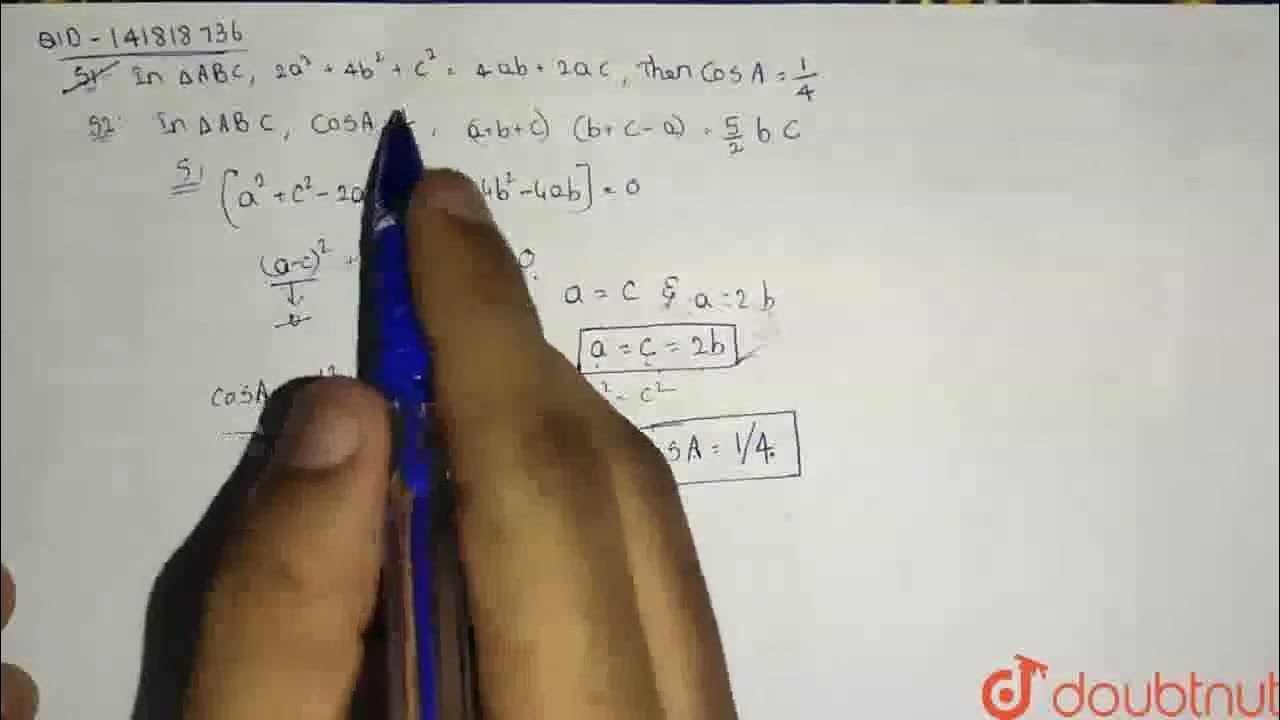 QID - 141818736
S1 In ΔABC, 2a² + 4b² + c² = 4ab + 2ac, Then CosA = 1/4
S2: In ΔABC, CosA , (a+b+c) (b+c-a) = 5/2 bc
S1 [a² + c² - 2a 4b² - 4ab] = 0
(a-c)² + 0
a = c & a = 2b
a = c = 2b
cosA ² - c²
sA = 1/4.
doubtnut